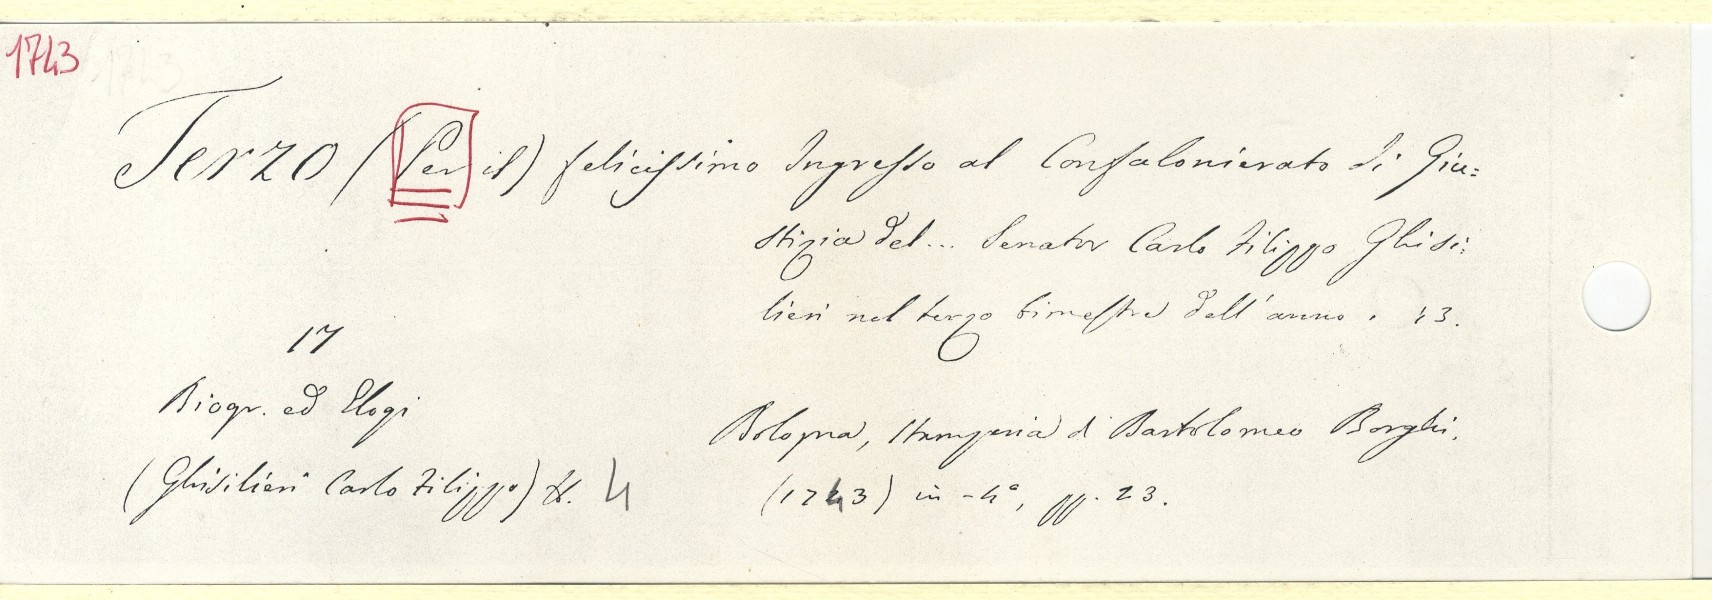 1743
Terzo (Per il) felicissimo Ingresso al Confalonierato di Giu=
stizia del... Senator Carlo Filippo Ghisi=
lieri nel terzo bimestre dell'anno . 43.
17
Biogr. ed Elogi
Bologna, Stamperia di Bartolomeo Borghi.
(Ghisilieri Carlo Filippo) 4
(1743) in-4°, pp. 23.